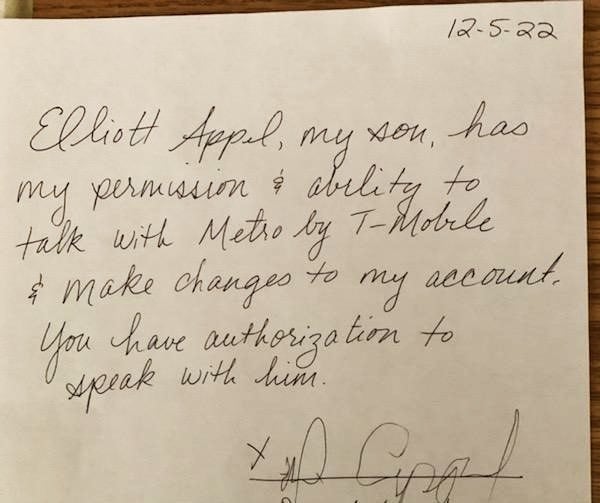 12-5-22
Elliott Appel, my son, has
my permission & ability to
talk with Metro by T-Mobile
& make changes to my account.
You have authorization to
speak with him.
x